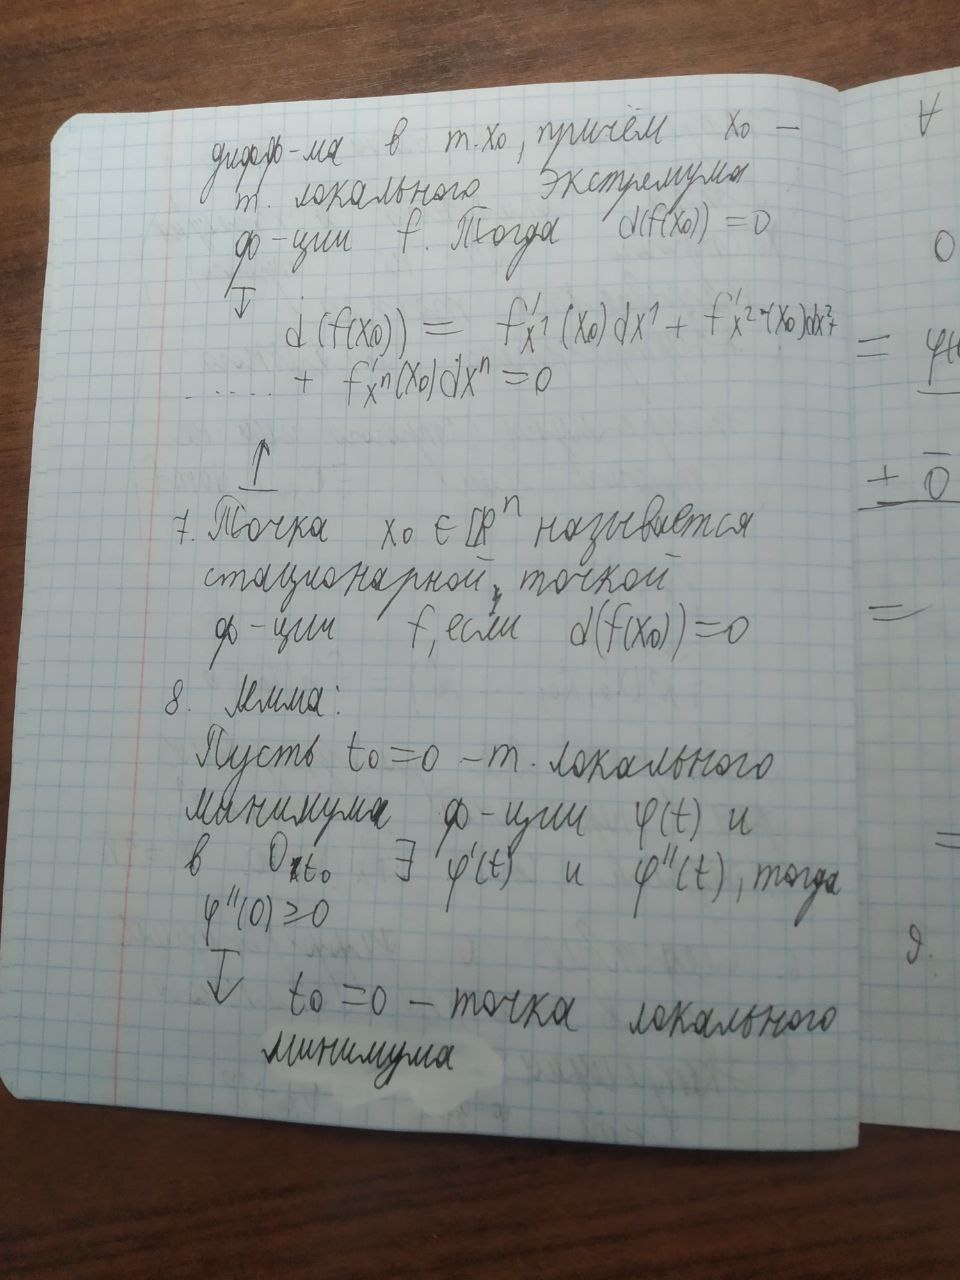 дифф-ма в т. x₀, причём x₀ –
т. локального экстремума
ф-ции f. Тогда d(f(x₀)) = 0
↓
d(f(x₀)) = f'x¹(x₀)dx¹ + f'x²(x₀)dx² +
..... + f'xⁿ(x₀)dxⁿ = 0
↑
7. Точка x₀ ∈ ℝⁿ называется
стационарной точкой
ф-ции f, если d(f(x₀)) = 0
8. Лемма:
Пусть t₀ = 0 – т. локального
минимума ф-ции φ(t) и
в Ot₀ ∃ φ'(t) и φ''(t), тогда
φ''(0) ≥ 0
↓
t₀ = 0 – точка локального
минимума
∀
0
= φ(t
± 0
=
=
9.